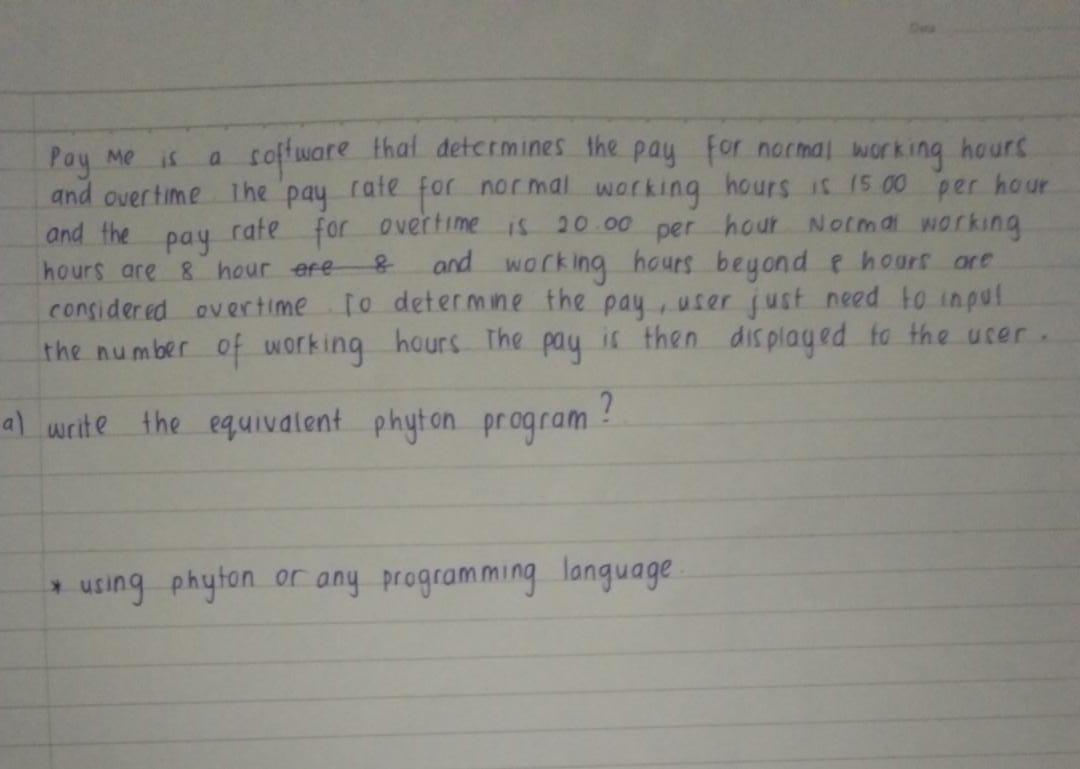 Date
Pay Me is a software that determines the pay for normal working hours
and overtime. The pay rate for normal working hours is 15.00 per hour
and the pay rate for overtime is 20.00 per hour. Normal working
hours are 8 hour are 8 and working hours beyond 8 hours are
considered overtime. To determine the pay, user just need to input
the number of working hours. The pay is then displayed to the user.
a) write the equivalent phyton program?
* using phyton or any programming language.